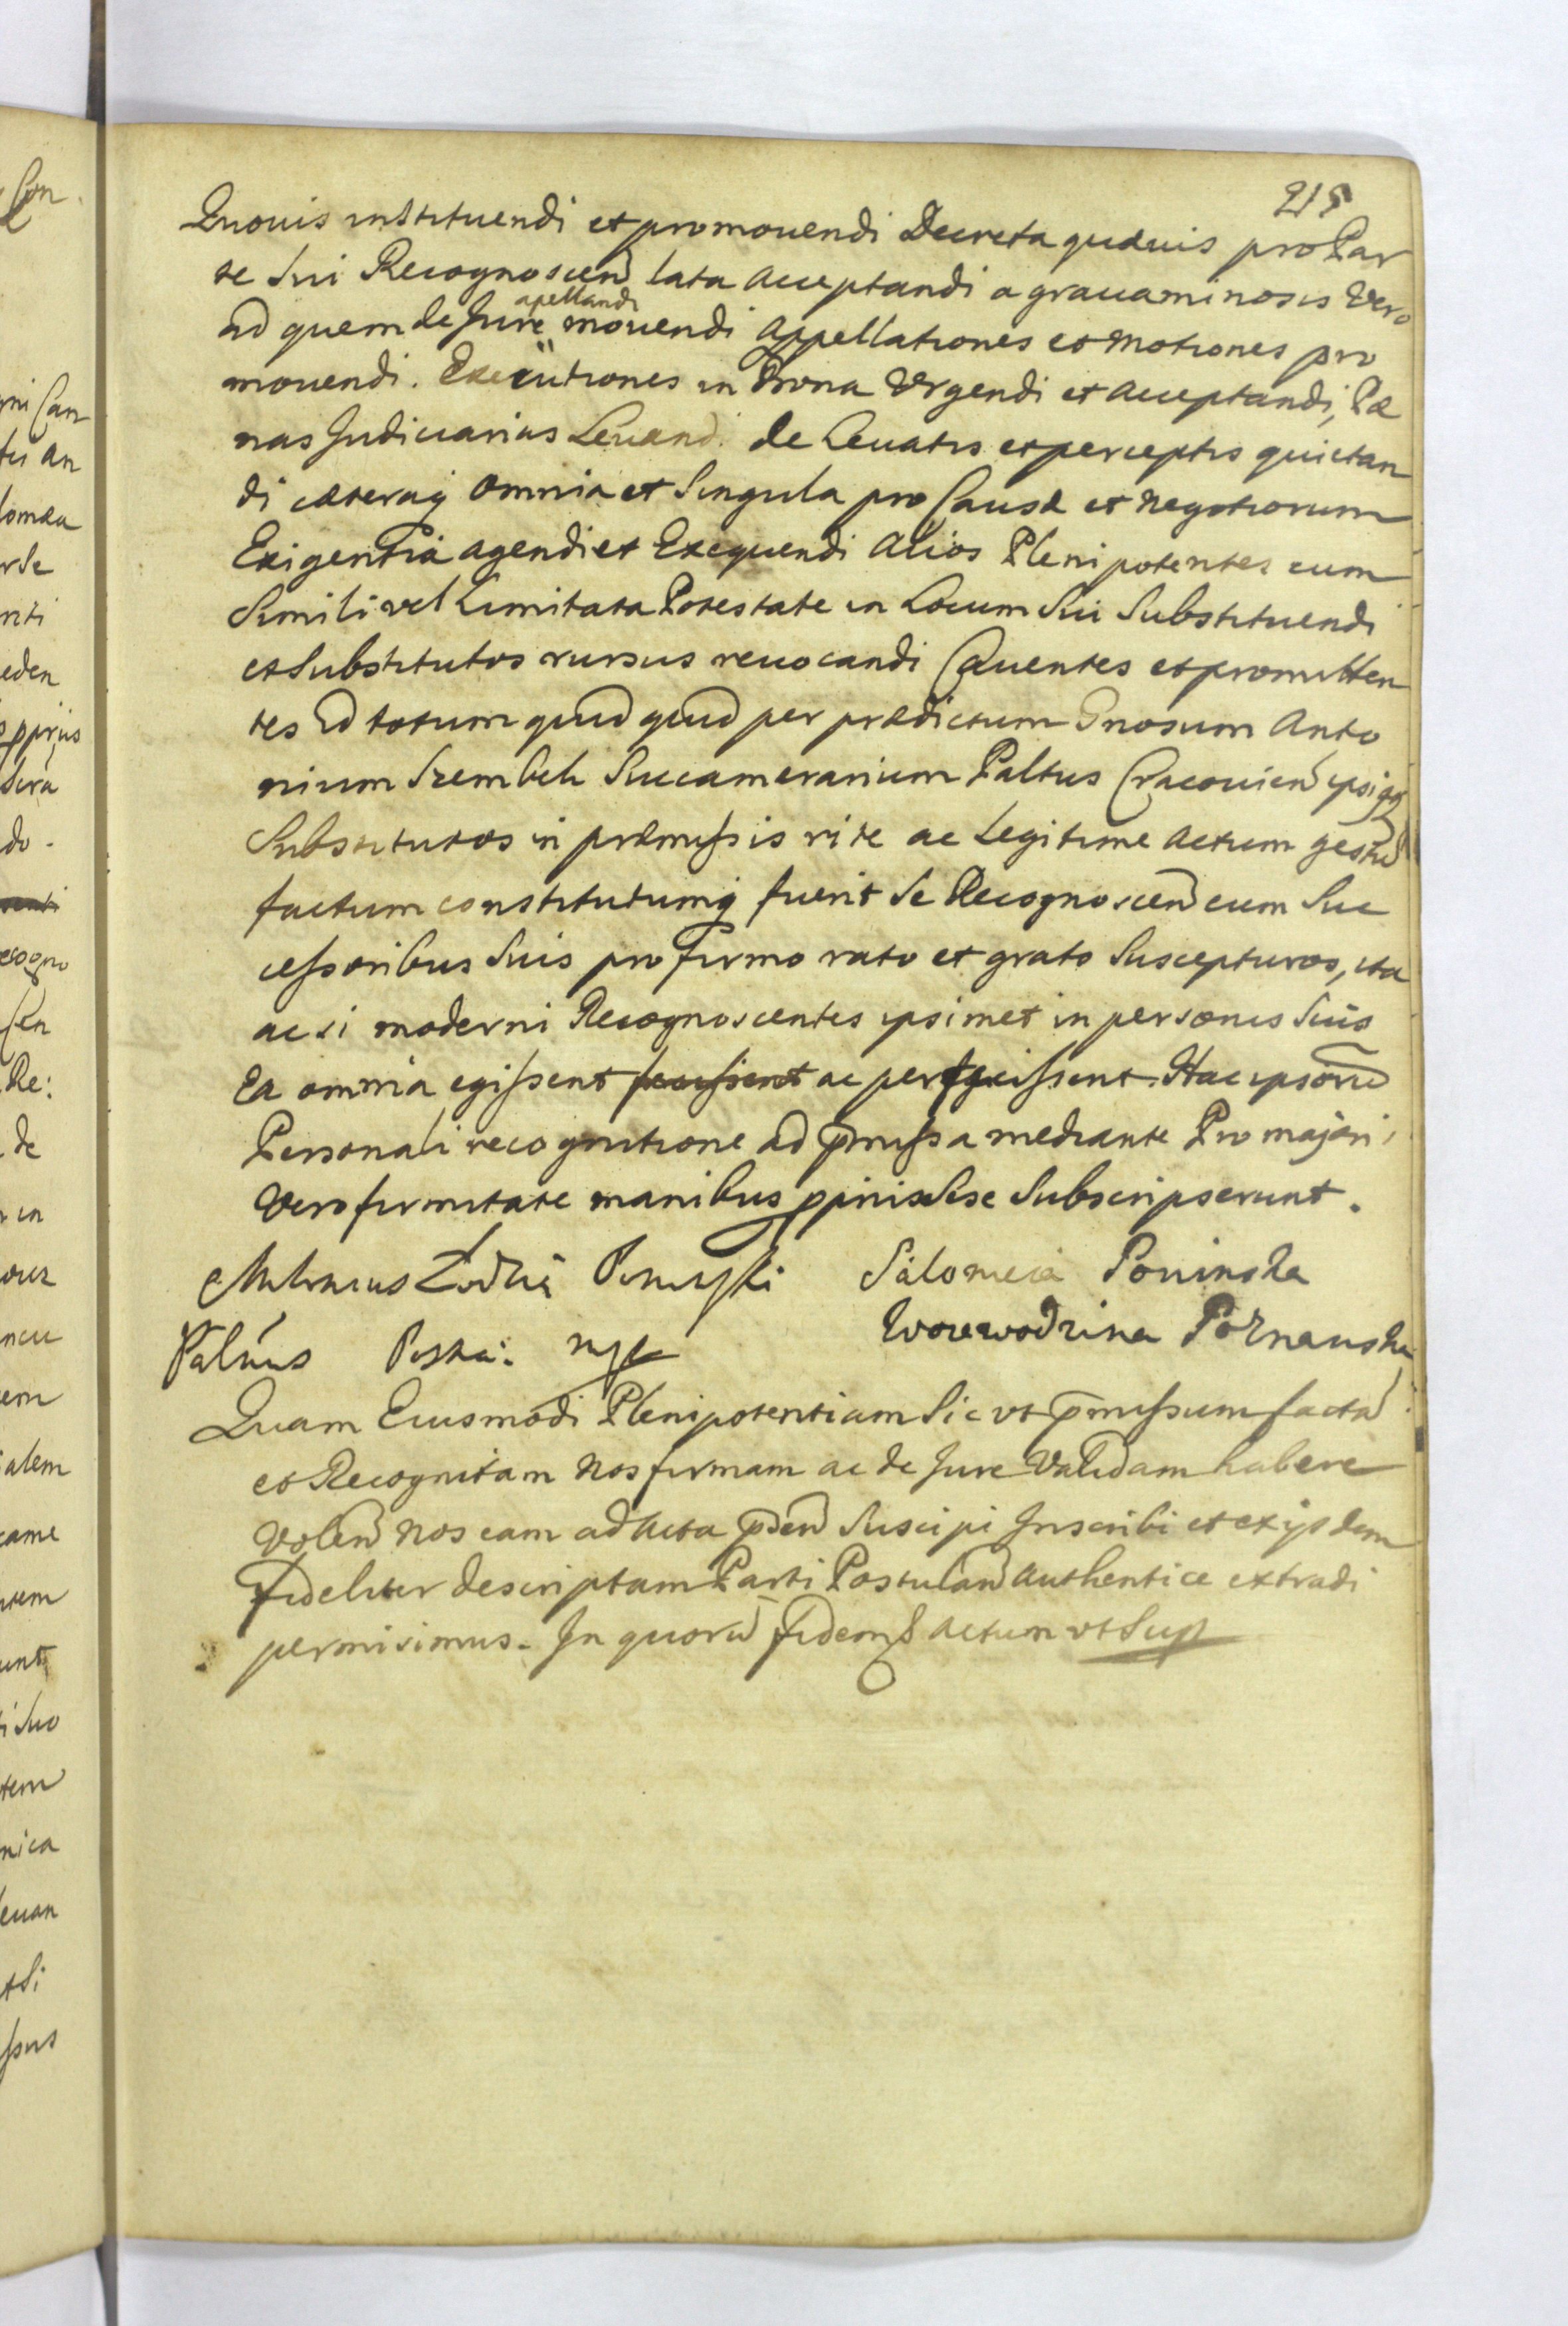 215
Quouis instituendi et promouendi Decreta quæuis pro Par
te sui Recognoscen lata acceptandi a grauaminosis vero
ad quem de Jure apellandi mouendi Appellationes et motiones pro
mouendi. Executiones in Bona Vrgendi et acceptandi, Pæ
nas Judiciarias Leuand. de Leuatis et perceptis quietan
di cæteraq omnia et Singula pro Causæ et negotiorum
Exigentia agendi et Exequendi Alios Plenipotentes cum
Simili vel Limitata Potestate in Locum Sui Substituendi
et Substitutos rursus reuocandi Cauentes et promitten
tes Id totum quid quid per prædictum Gnosum Anto
nium Szembek Succamerarium Paltus Cracouien ipsiqq
Substitutos in præmissis rite ac Legitime actum gestu
factum constitutumq fuerit se Recognoscen cum Suc
cessoribus Suis pro firmo rato et grato Suscepturos, ita
ac si moderni Recognoscentes ipsimet in personis Suis
Ea omnia egissent fecissent ac peregissent. Hac ipsoru
Personali recognitione ad pmissa mediante Pro majori
vero firmitate manibus ppriis sese Subscripserunt.
Antonius Łodzia Poninski Salomeia Poninska
Palnus Posna: mp Woiewodzina Poznanska
Quam Eiusmodi Plenipotentiam Sic vt pmissum facta
et Recognitam nos firmam ac de Jure Validam habere
Volen nos eam ad Acta pden Suscipi Inscribi et ex ijsdem
fideliter descriptam Parti Postulan authentice extradi
permisimus. In quoru fidem Actum vt Sup